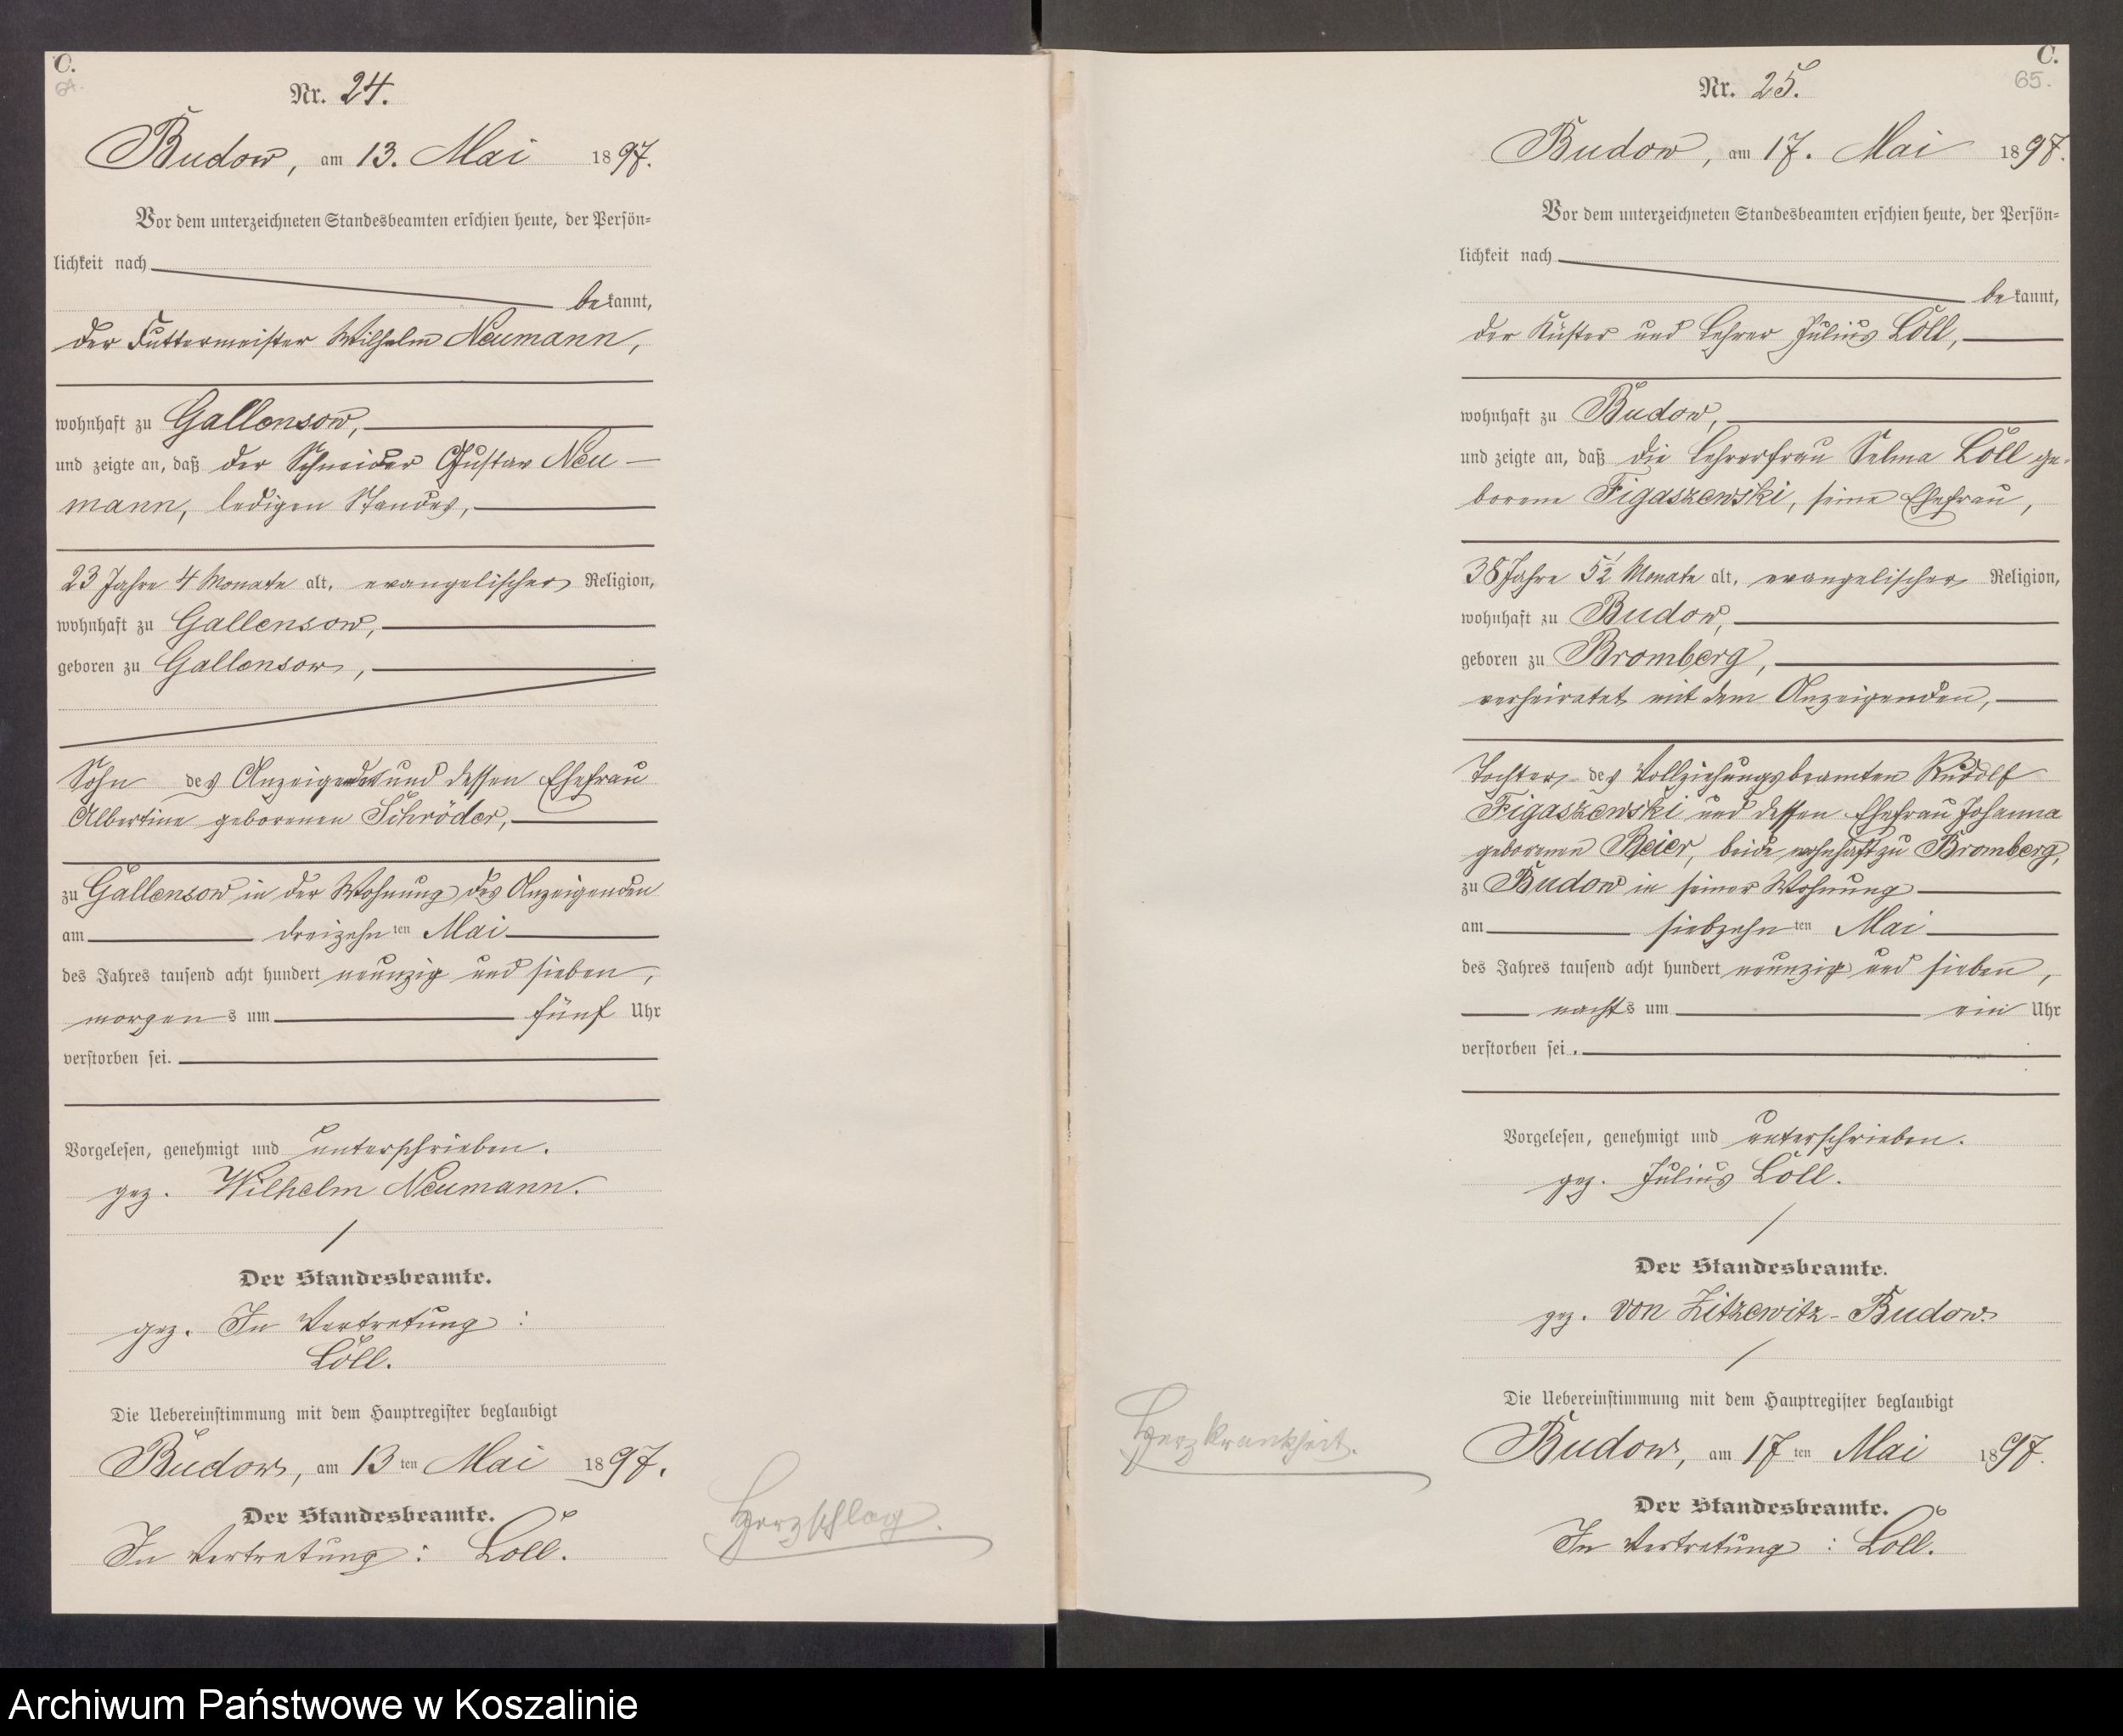 C.
64.
Nr. 24.
Budow, am 13. Mai 1897.
Vor dem unterzeichneten Standesbeamten erschien heute, der Persön-
lichkeit nach
bekannt,
der Futtermeister Wilhelm Neumann,
wohnhaft zu Gallensow,
und zeigte an, daß der Schneider Gustav Neu-
mann, ledigen Standes,
23 Jahre 4 Monate alt, evangelischer Religion,
wohnhaft zu Gallensow,
geboren zu Gallensow,
Sohn des Anzeigenden und dessen Ehefrau
Albertine geborenen Schröder,
zu Gallensow in der Wohnung des Anzeigenden
am dreizehnten Mai
des Jahres tausend acht hundert neunzig und sieben,
morgens um fünf Uhr
verstorben sei.
Vorgelesen, genehmigt und unterschrieben.
gez. Wilhelm Neumann.
Der Standesbeamte.
gez. In Vertretung:
Löll.
Die Uebereinstimmung mit dem Hauptregister beglaubigt
Budow, am 13ten Mai 1897.
Der Standesbeamte.
In Vertretung: Löll.
Herzschlag.
C.
65.
Nr. 25.
Budow, am 17. Mai 1897.
Vor dem unterzeichneten Standesbeamten erschien heute, der Persön-
lichkeit nach
bekannt,
der Küster und Lehrer Julius Löll,
wohnhaft zu Budow,
und zeigte an, daß die Lehrerfrau Selma Löll ge-
borene Figaszewski, seine Ehefrau,
38 Jahre 5½ Monate alt, evangelischer Religion,
wohnhaft zu Budow,
geboren zu Bromberg,
verheiratet mit dem Anzeigenden,
Tochter des Vollziehungsbeamten Rudolf
Figaszewski und dessen Ehefrau Johanna
geborenen Beier, beide wohnhaft zu Bromberg,
zu Budow in seiner Wohnung
am siebzehnten Mai
des Jahres tausend acht hundert neunzig und sieben,
nachts um ein Uhr
verstorben sei.
Vorgelesen, genehmigt und unterschrieben.
gez. Julius Löll.
Der Standesbeamte.
gez. von Zitzewitz-Budow.
Die Uebereinstimmung mit dem Hauptregister beglaubigt
Budow, am 17ten Mai 1897.
Der Standesbeamte.
In Vertretung: Löll.
Herzkrankheit.
Archiwum Państwowe w Koszalinie